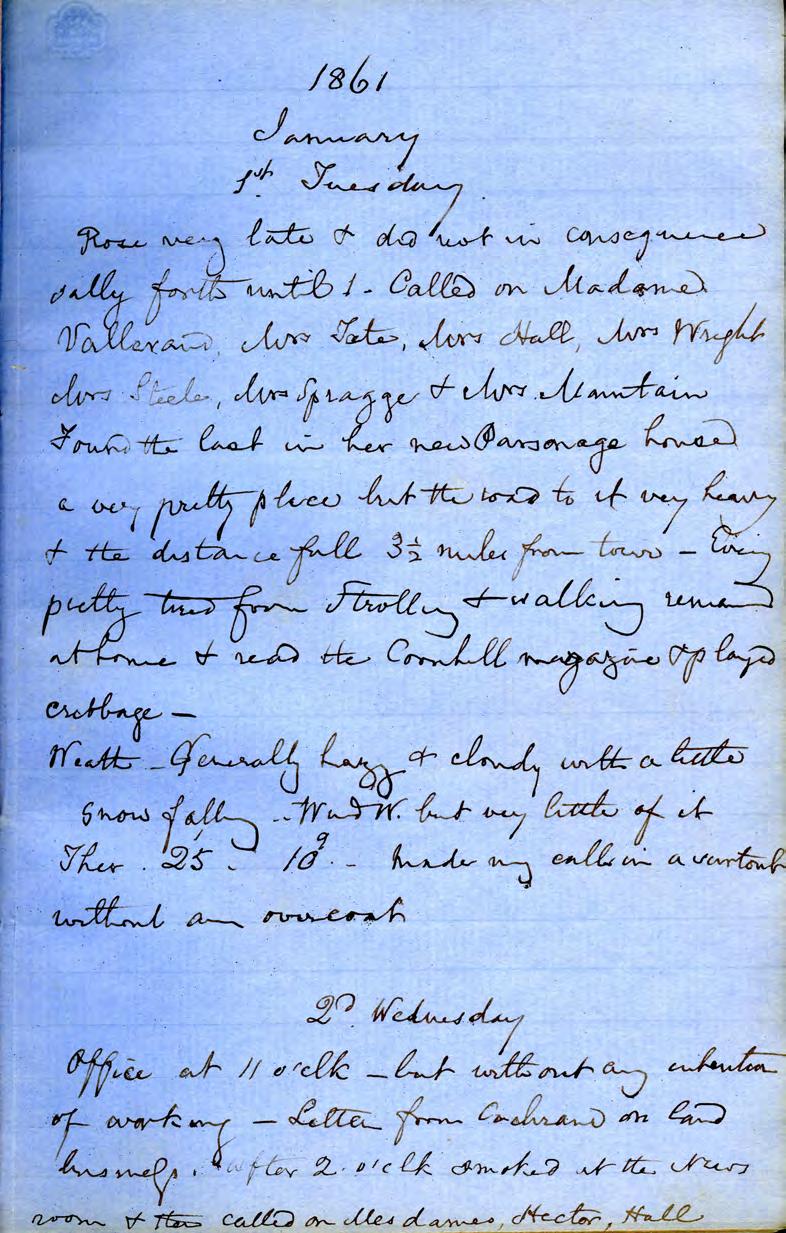 1861
January
1st Tuesday
Rose very late & did not in consequence
sally forth until 1 - Called on Madame
Vallerand, Mrs Tate, Mrs Hall, Mrs Wright
Mrs Steele, Mrs Spragge & Mrs Mountain
Found the last in her new Parsonage house
a very pretty place but the road to it very heavy
& the distance full 3½ miles from town - Eving
pretty tired from Strolling & walking remaind
at home & read the Cornhill magazine & played
cribbage -
Weath - Generally hazy & cloudy with a little
Snow falling - Wind W. but very little of it
Ther. 25 - 10 - Made my calls in a
without an overcoat
2d Wednesday
Office at 11 o'clk - but without any intention
of working - Letter from Cochrane on land
business. After 2 o'clk smoked at the News
room & then called on Mesdames, Hector, Hall